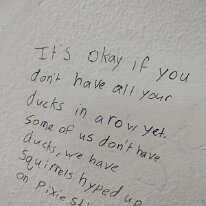 It's okay if you
don't have all your
ducks in a row yet.
some of us don't have
ducks, we have
squirrels hyped up
on pixie